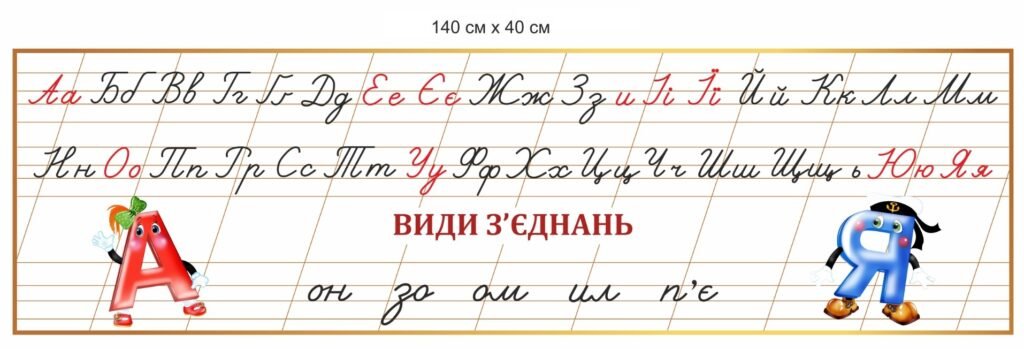 140 см х 40 см
Аа Бб Вв Гг Ґґ Дд Ее Єє Жж Зз и Іі Її Йй Кк Лл Мм
Нн Оо Пп Рр Сс Тт Уу Фф Хх Цц Чч Шш Щщ ь Юю Яя
ВИДИ З’ЄДНАНЬ
он зо ом ил п’є